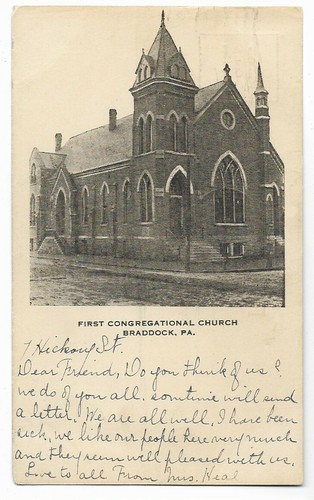 FIRST CONGREGATIONAL CHURCH
BRADDOCK, PA.
7 Hickory St.
Dear Friend, Do you think of us?
we do of you all. somtime will send
a letter. We are all well, I have been
sick, we like our people here very much
and they seem well pleased with us.
Love to all From Mrs. Heal